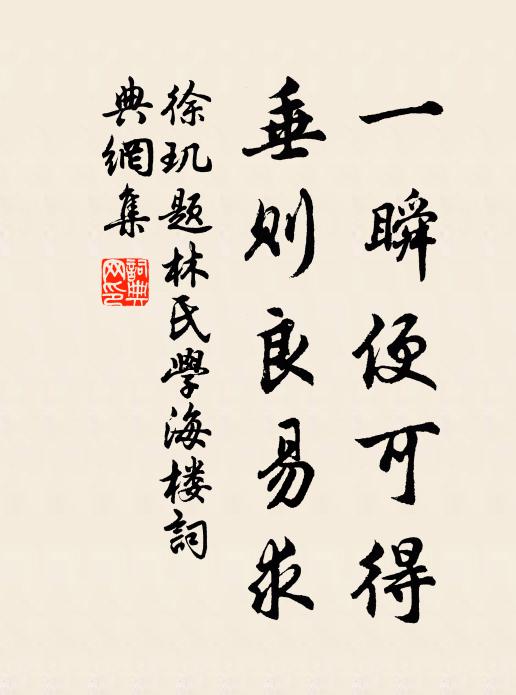 一瞬便可得
垂則良易求
徐玑题林氏學海楼詞
典網集
詞典网印